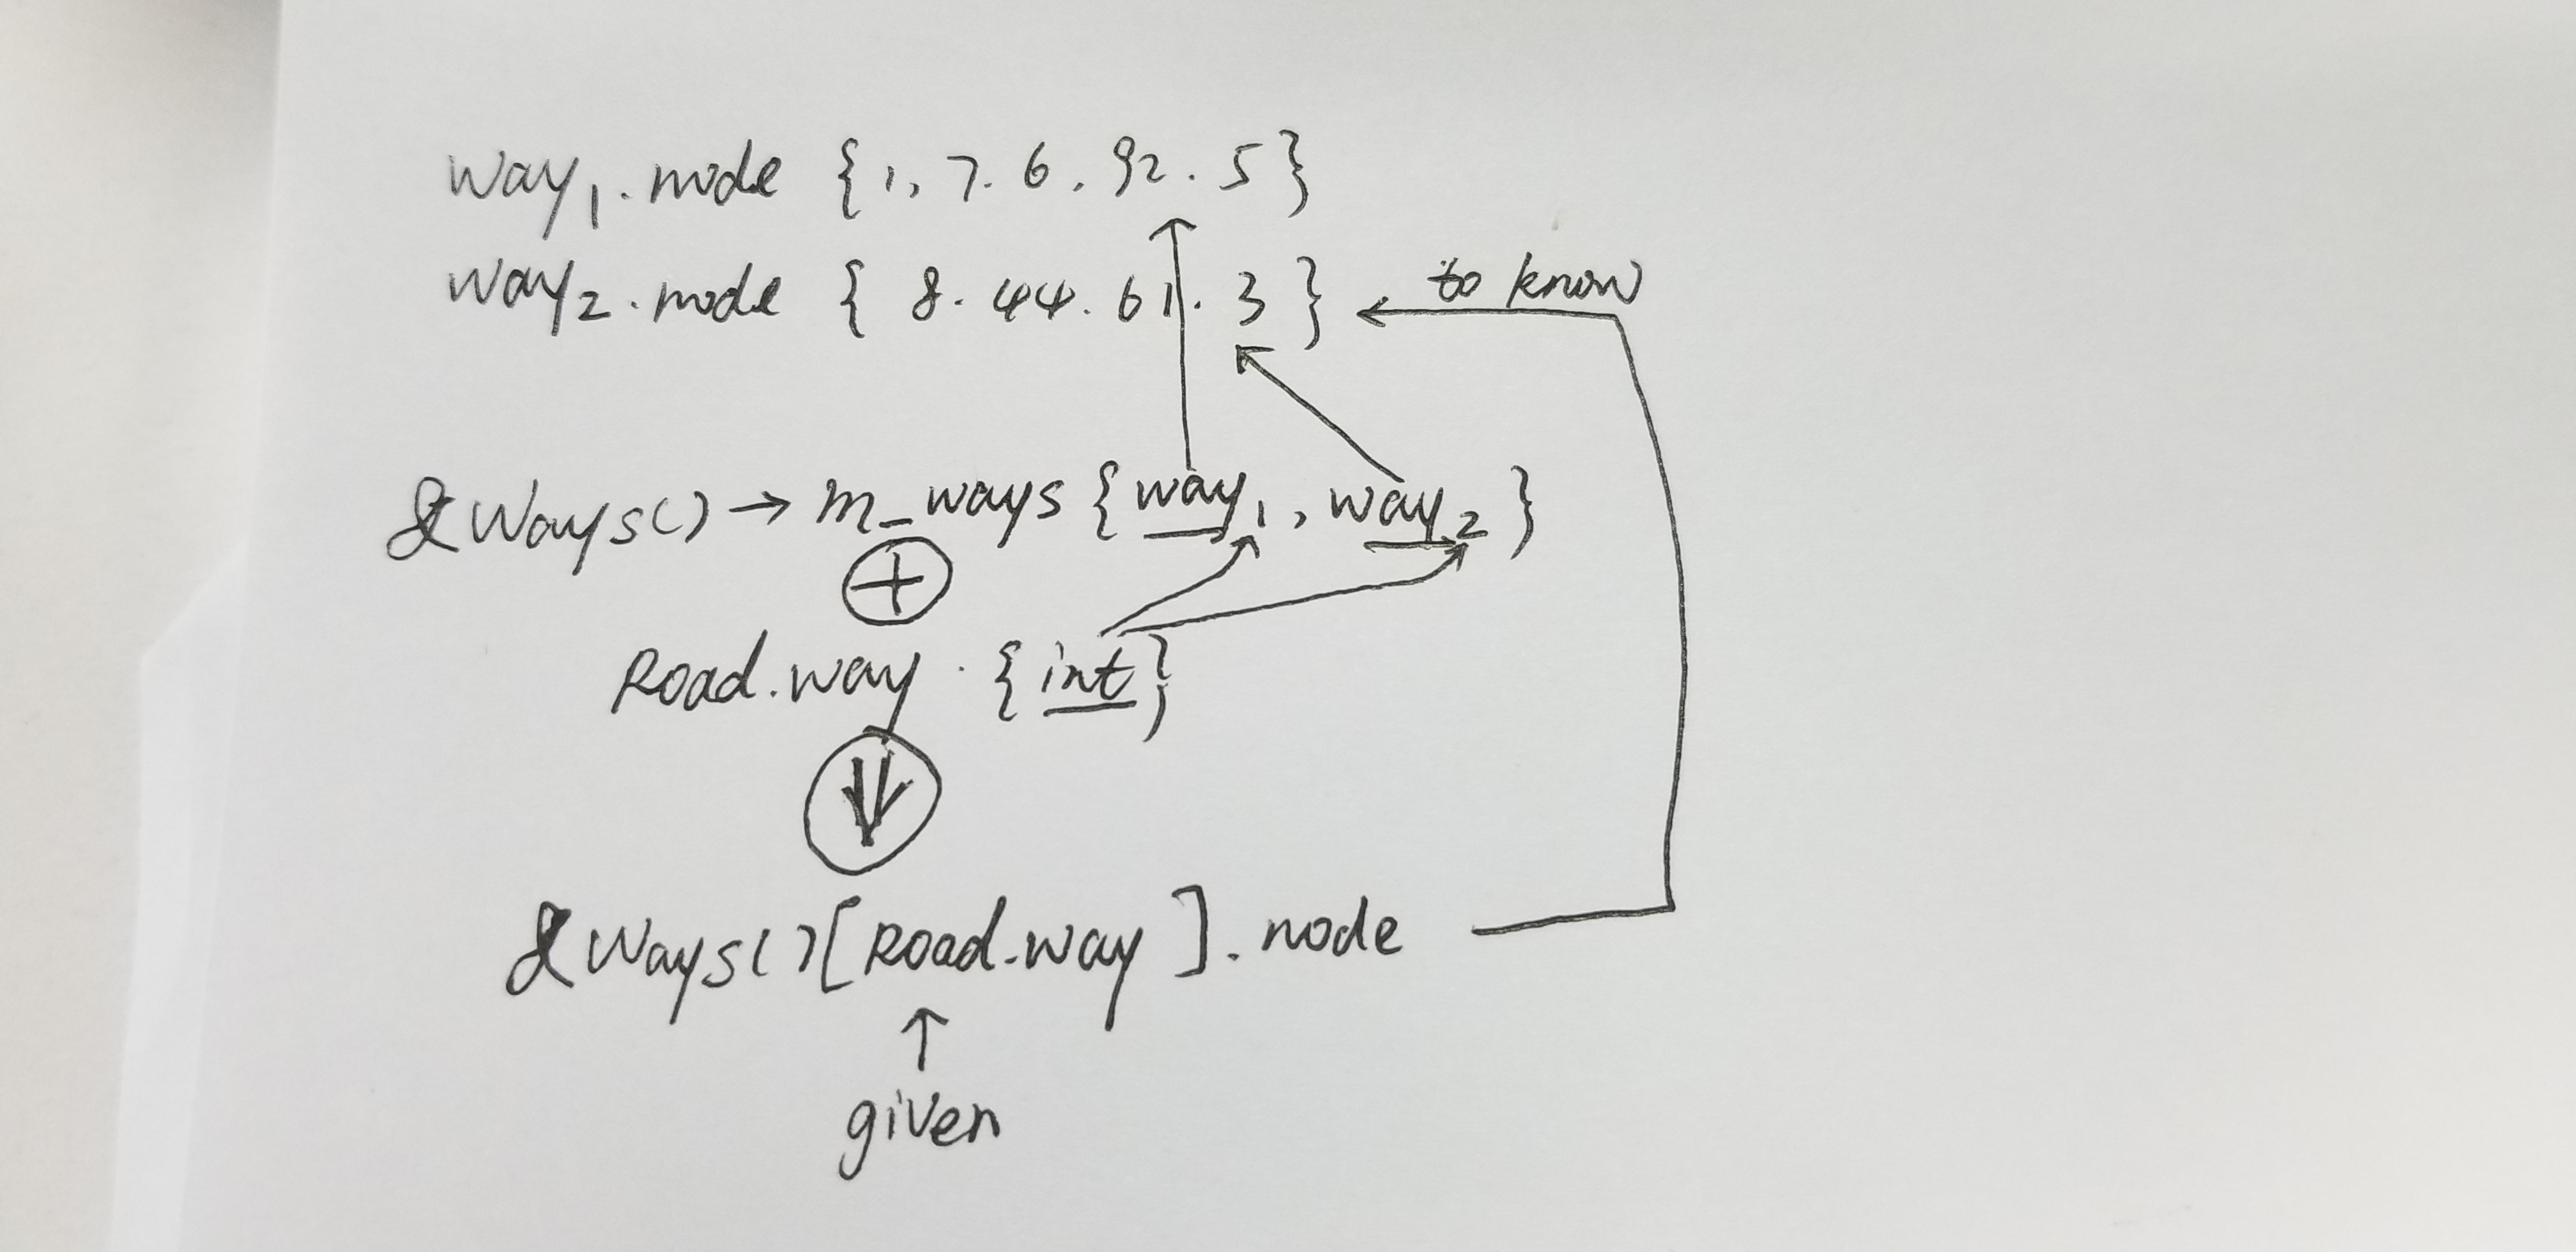 way1.node {1, 7. 6. 92. 5}
way2.node { 8. 44. 61. 3 } ← to know
&Ways() → m_ways {way1, way2}
+
Road.way. {int}
⇓
&Ways()[Road.way].node
↑
given